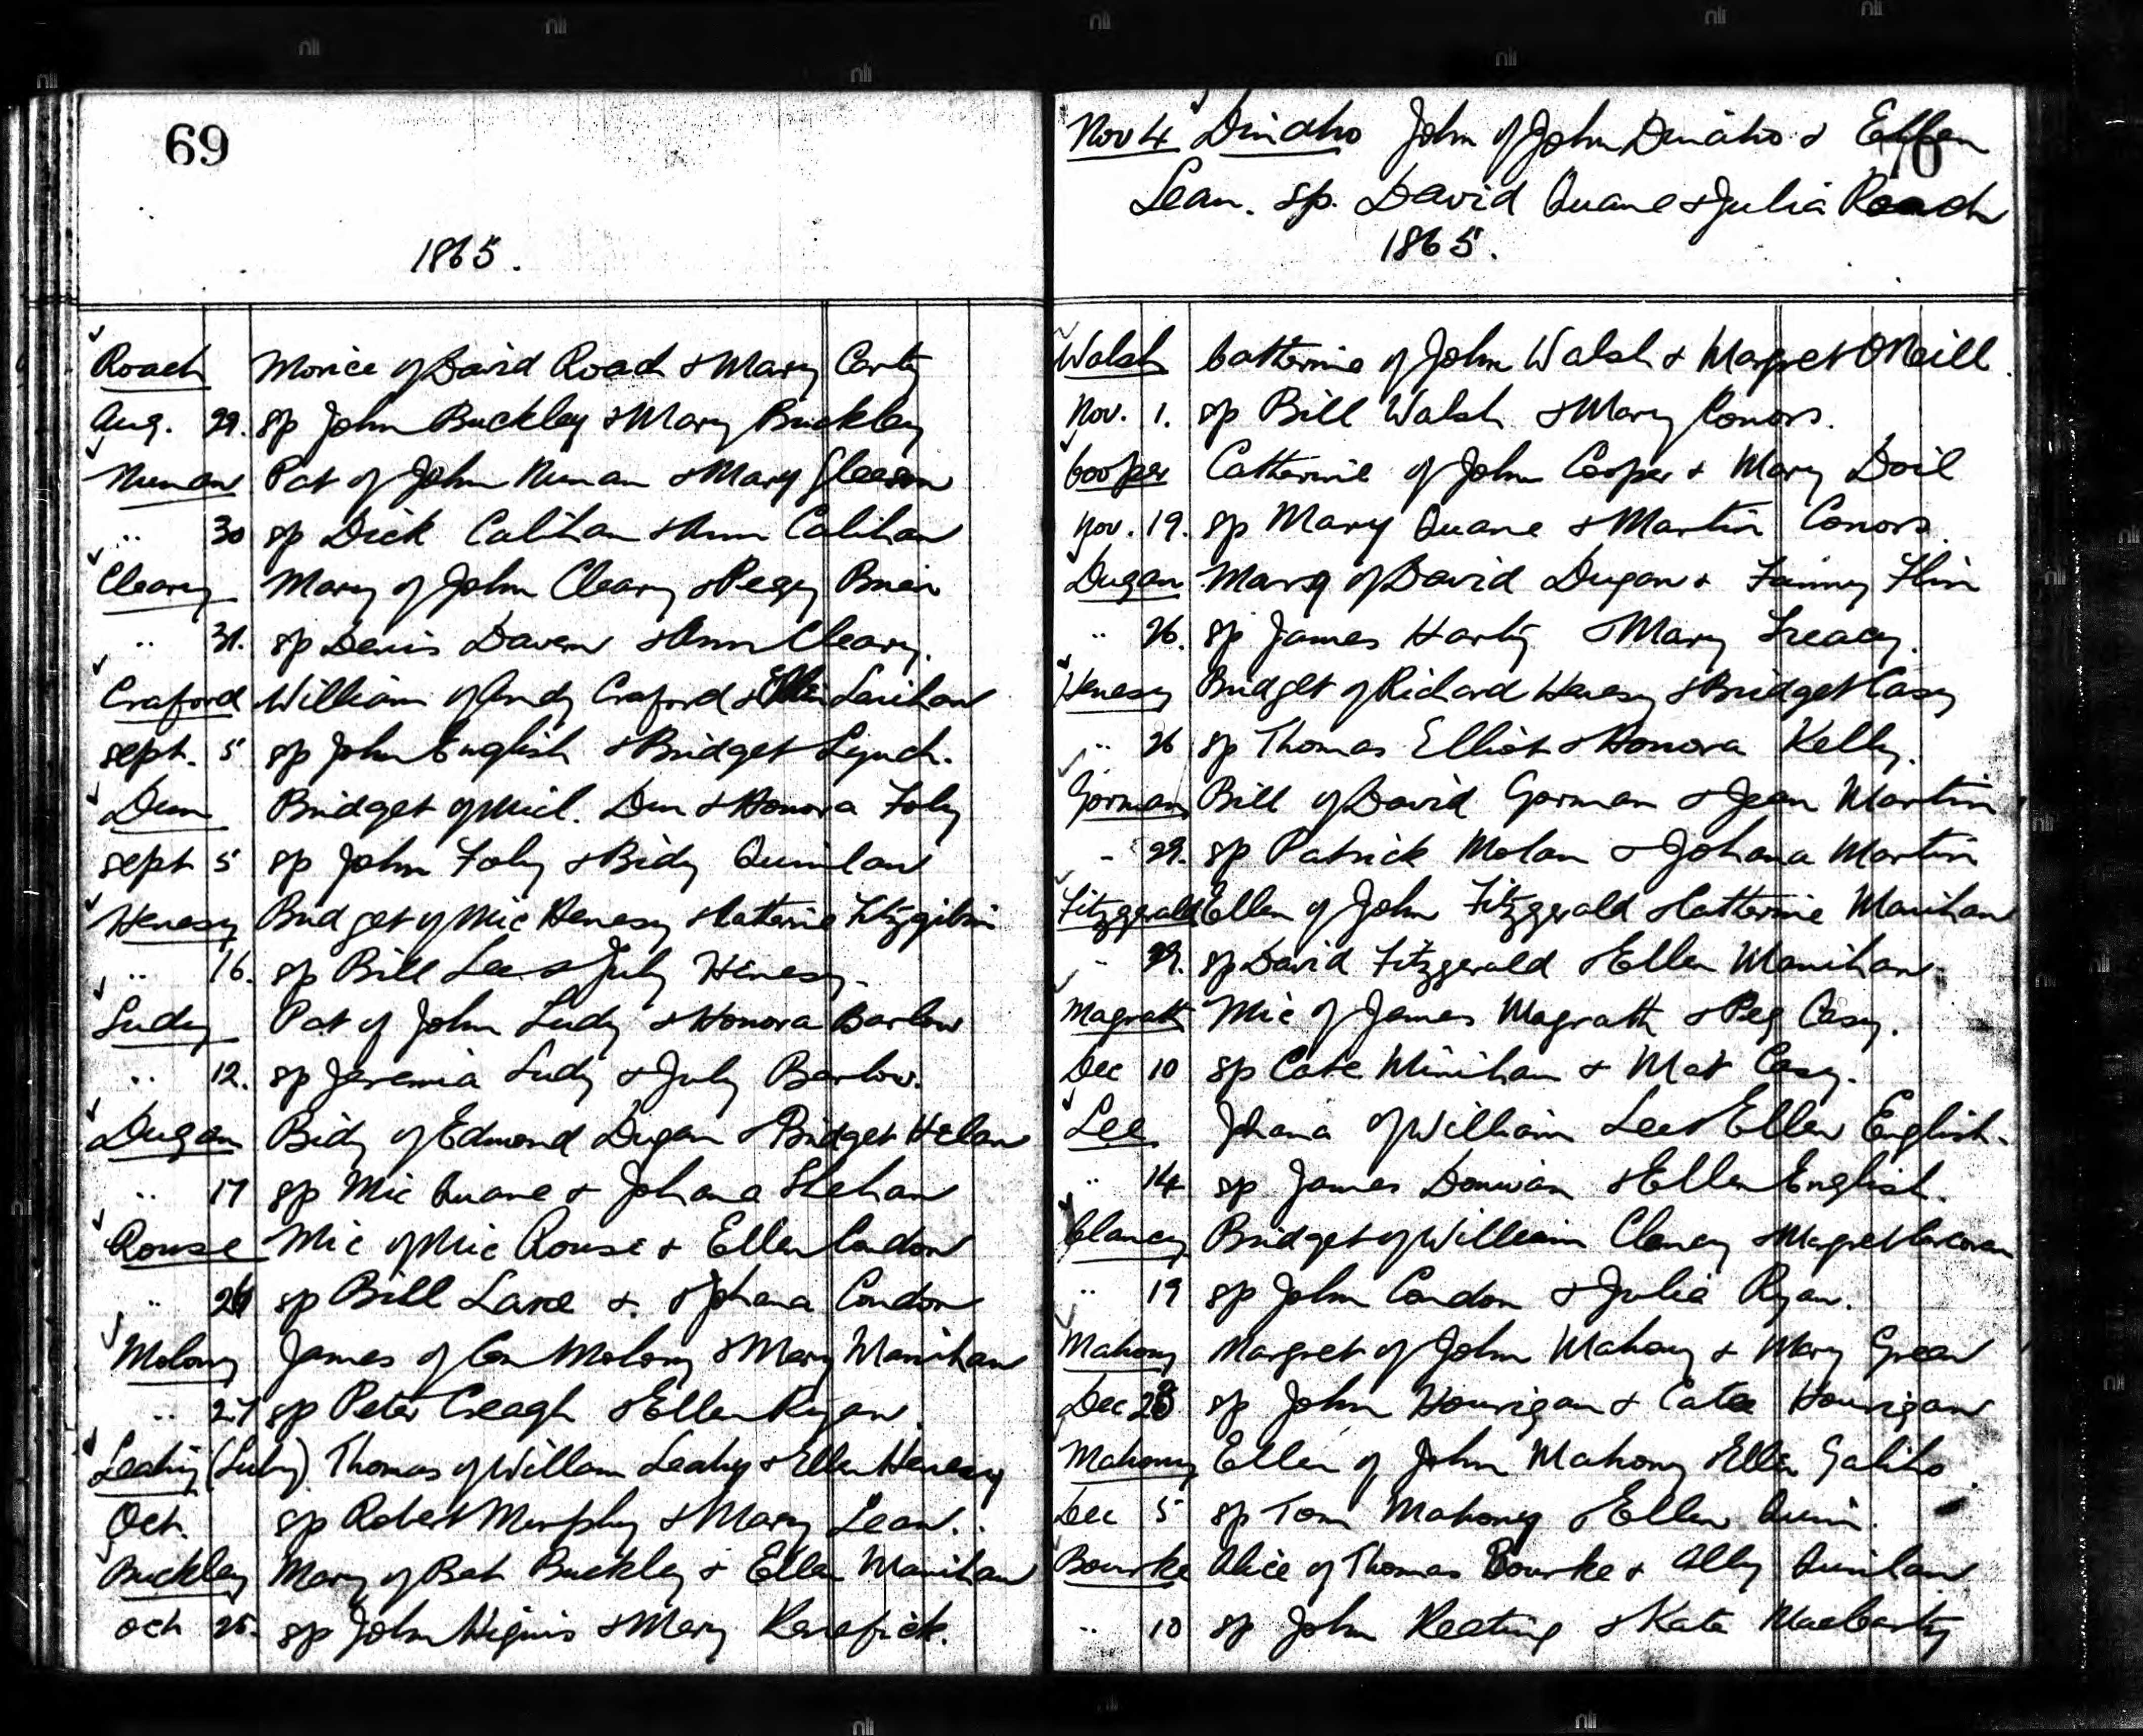 69
1865.
Roach Morice of David Roach & Mary Carty
Aug. 29. sp John Buckley & Mary Buckley
Nunan Pat of John Nunan & Mary Gleeson
" 30 sp Dick Calihan & Ann Calihan
Cleary Mary of John Cleary & Pegy Brien
" 31. sp Denis Daven & Ann Cleary.
Craford William of Andy Craford & Ellen Lenihan
sept. 5 sp John English & Bridget Lynch.
Dun Bridget of Mich. Dun & Honora Foly
sept 5 sp John Foly & Bidy Quinlan
Henesy Bridget of Mic Henesy & Catterine Fitzgibin
" 16. sp Bill Lee & July Henesy.
Ludy Pat of John Ludy & Honora Barlow
" 12. sp Jeremia Ludy & July Barlow.
Dugan Bidy of Edmond Dugan & Bridget Helan
" 17 sp Mic Quane & Johana Shehan
Rouse Mic of Mic Rouse & Ellen Condon
" sp Bill Lane & & Johana Condon
Molony James of Con Molony & Mary Manihan
" 27 sp Peter Creagh & Ellen Ryan.
Leahy (Luby) Thomas of Willam Leahy & Ellen Henesy
Oct. sp Robert Murphy & Mary Lean.
Buckley Mary of Bat Buckley & Ellen Manihan
Oct 25. sp John Higins & Mary Renefick.
70
Nov 4 Dinaho John of John Dinaho & Ellen
Lean. sp. David Quane & Julia Roach
1865.
Walsh Catterine of John Walsh & Magret O Neill.
Nov. 1. sp Bill Walsh & Mary Conors.
Cooper Catterine of John Cooper & Mary Doil
Nov. 19. sp Mary Quane & Martin Conors.
Dugan Mary of David Dugan & Fanny Flin
" 26. sp James Harty & Mary Treacy.
Henesy Bridget of Richard Henesy & Bridget Casy
" 26 sp Thomas Elliot & Honora Kelly.
Gorman Bill of David Gorman & Jean Martin
" 29. sp Patrick Molan & Johana Martin
Fitzgerald Ellen of John Fitzgerald & Catterine Manihan
" 29. sp David Fitzgerald & Ellen Manihan.
Magrath Mic of James Magrath & Peg Casy.
Dec 10 sp Cate Minihan & Mat Casy.
Lee Jhana of William Lee & Ellen English.
" 14 sp James Donivan & Ellen English.
Clancy Bridget of William Clancy & Magret Corcoran
" 19 sp John Condon & Julia Ryan.
Mahony Margret of John Mahony & Mary Grean
Dec 28 sp John Hourigan & Cate Hourigan
Mahony Ellen of John Mahony & Ellen Galiho.
Dec 5 sp Tom Mahony & Ellen Quin.
Bourke Alice of Thomas Bourke & Ally Quinlan
" 10 sp John Keating & Kate MacCarty